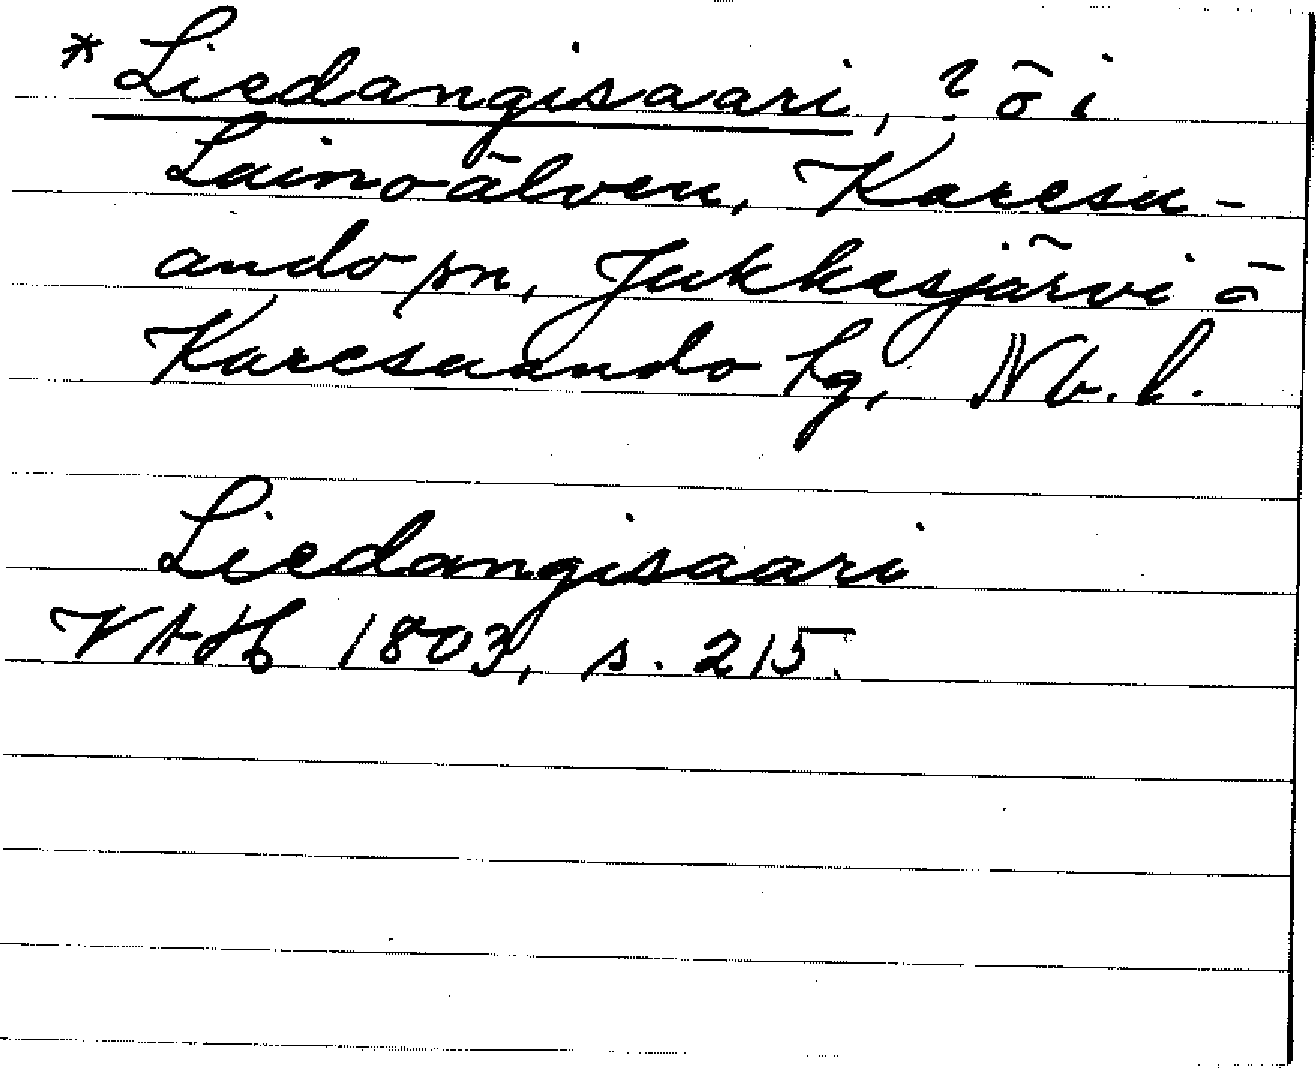 * Liedangisaari, ? ö i
Lainoälven, Karesu-
ando sn, Jukkasjärvi o
Karesuando lg, Nb. l.
Liedangisaari
VAH 1803, s. 215.